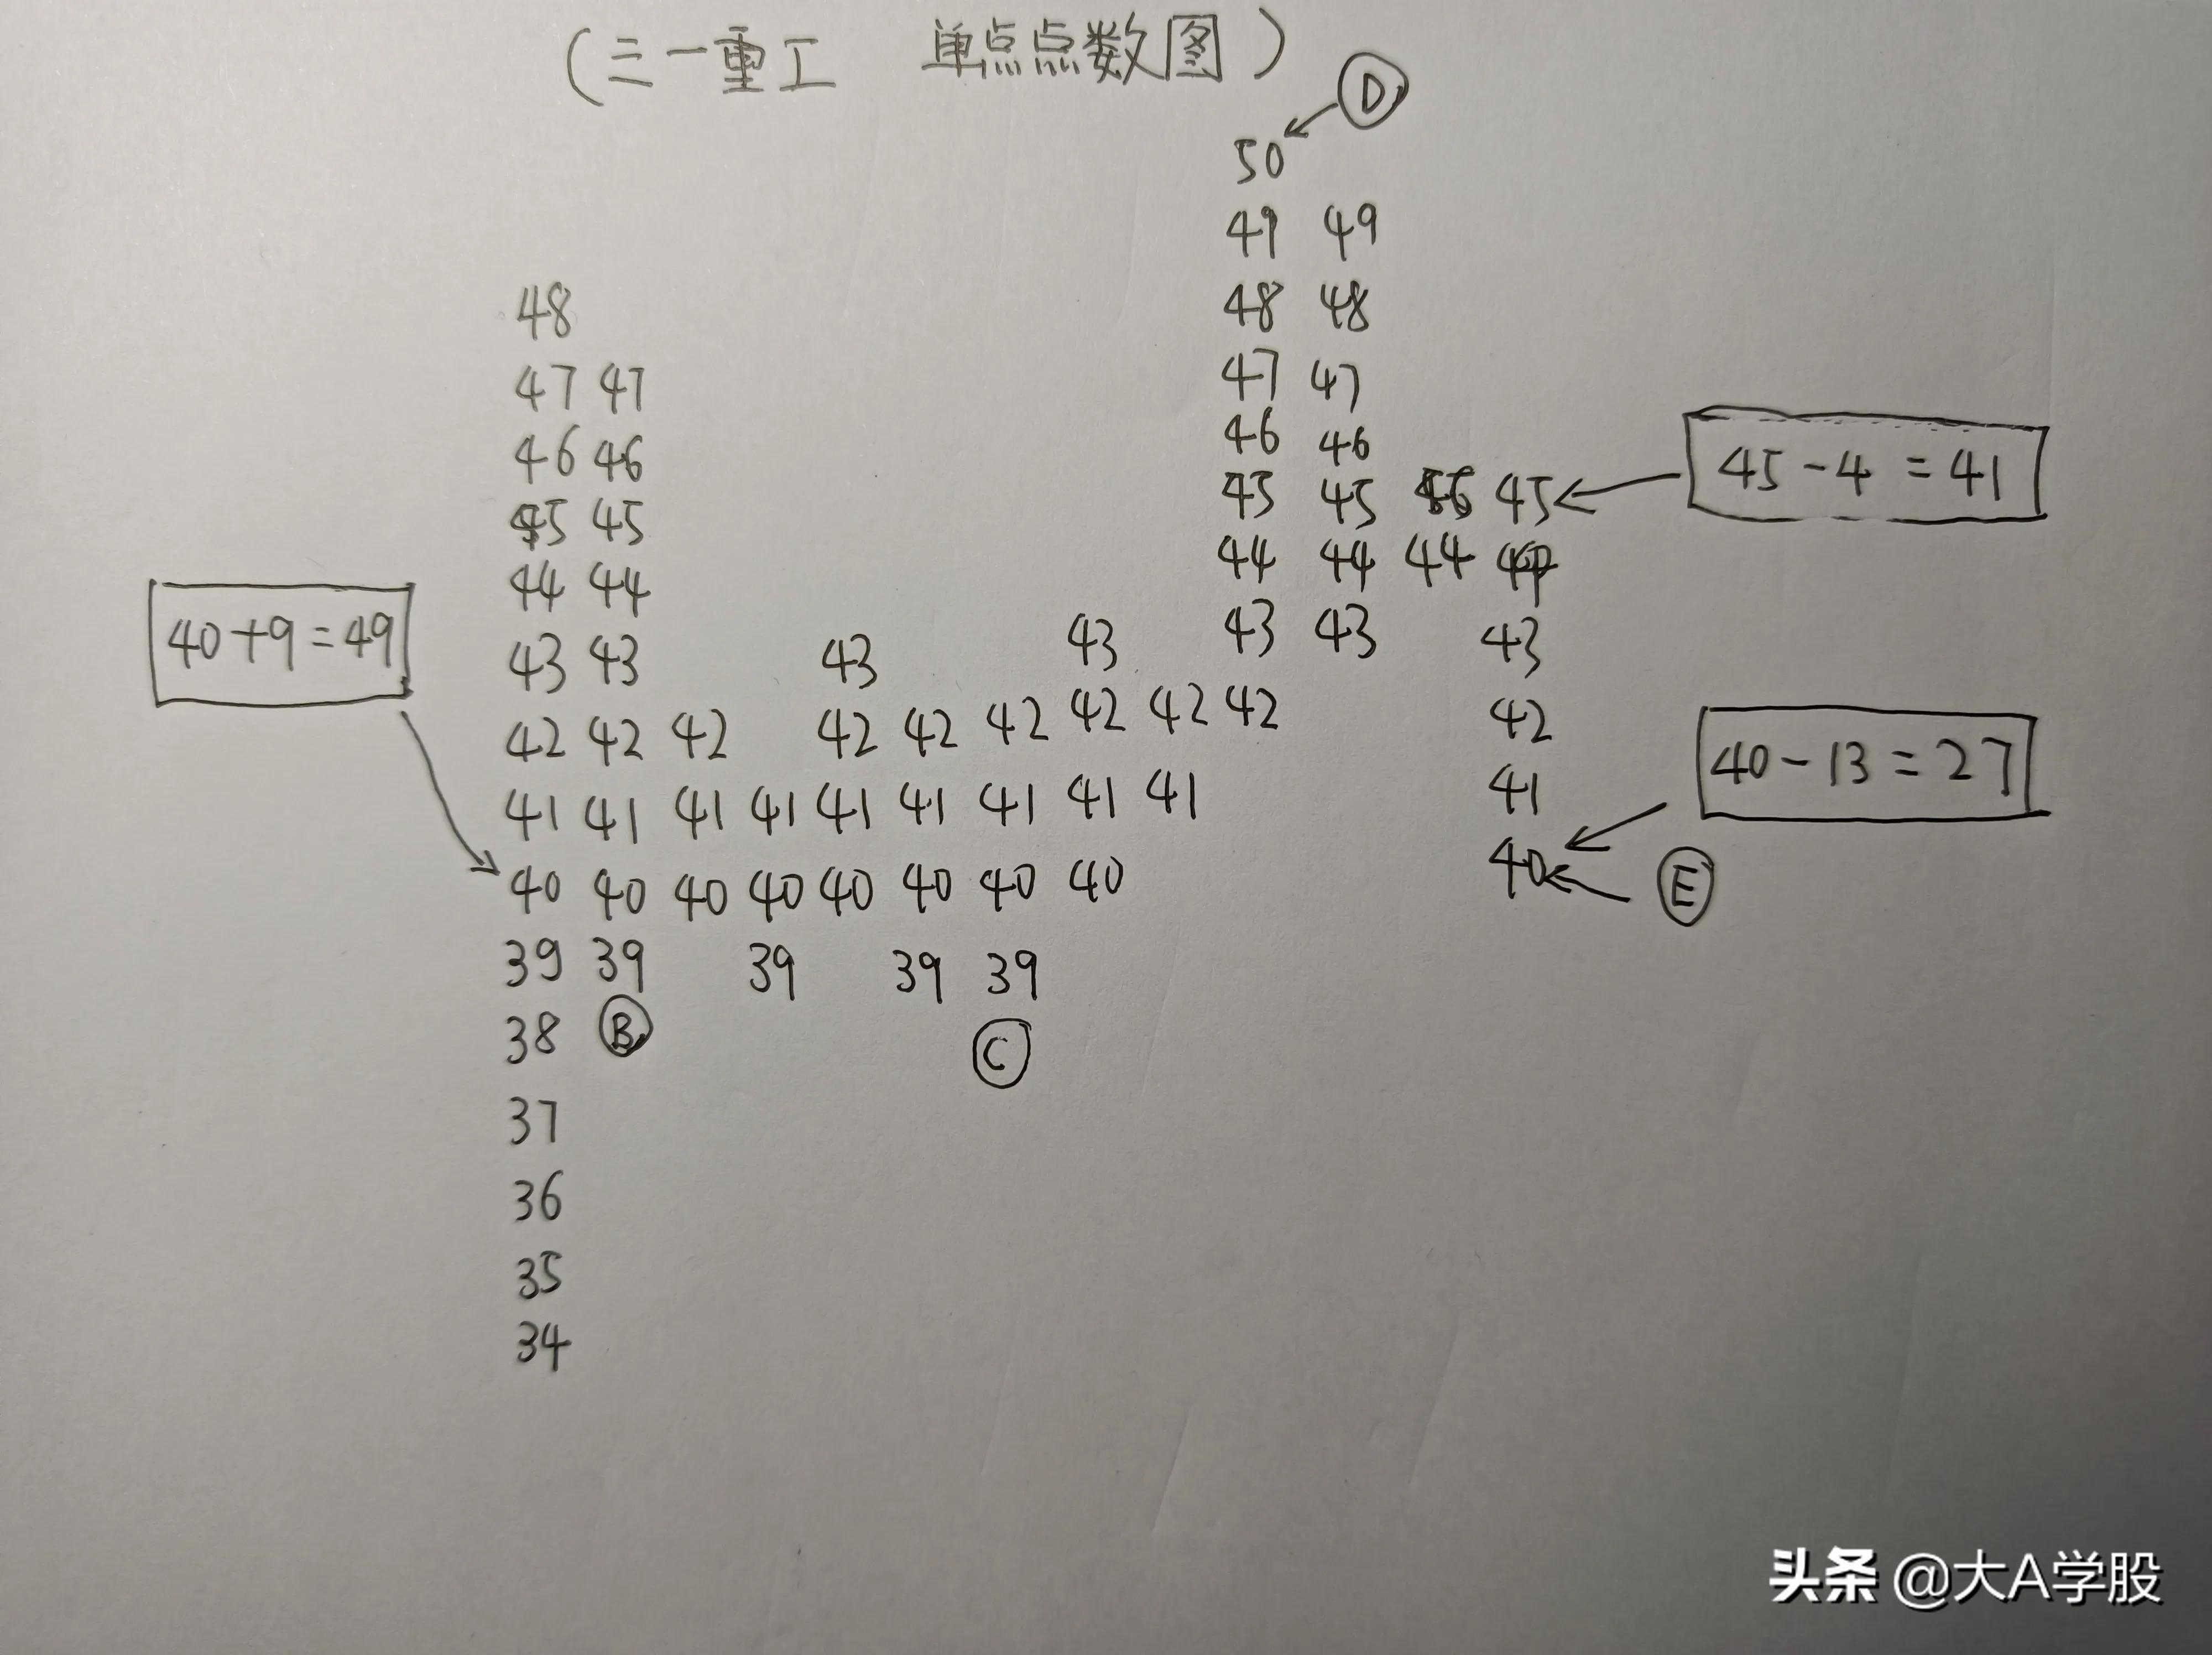 (三一重工 单点点数图)
D
50
49 49
48 48 48
47 47 47 47
46 46 46 46
45 45 45 45 45 45 - 4 = 41
44 44 44 44 44
40+9=49 43 43 43 43 43 43 43
42 42 42 42 42 42 42 42 42 42
40-13=27
41 41 41 41 41 41 41 41 41 41
40 40 40 40 40 40 40 40 40 E
39 39 39 39 39
38 B C
37
36
35
34
头条 @大A学股